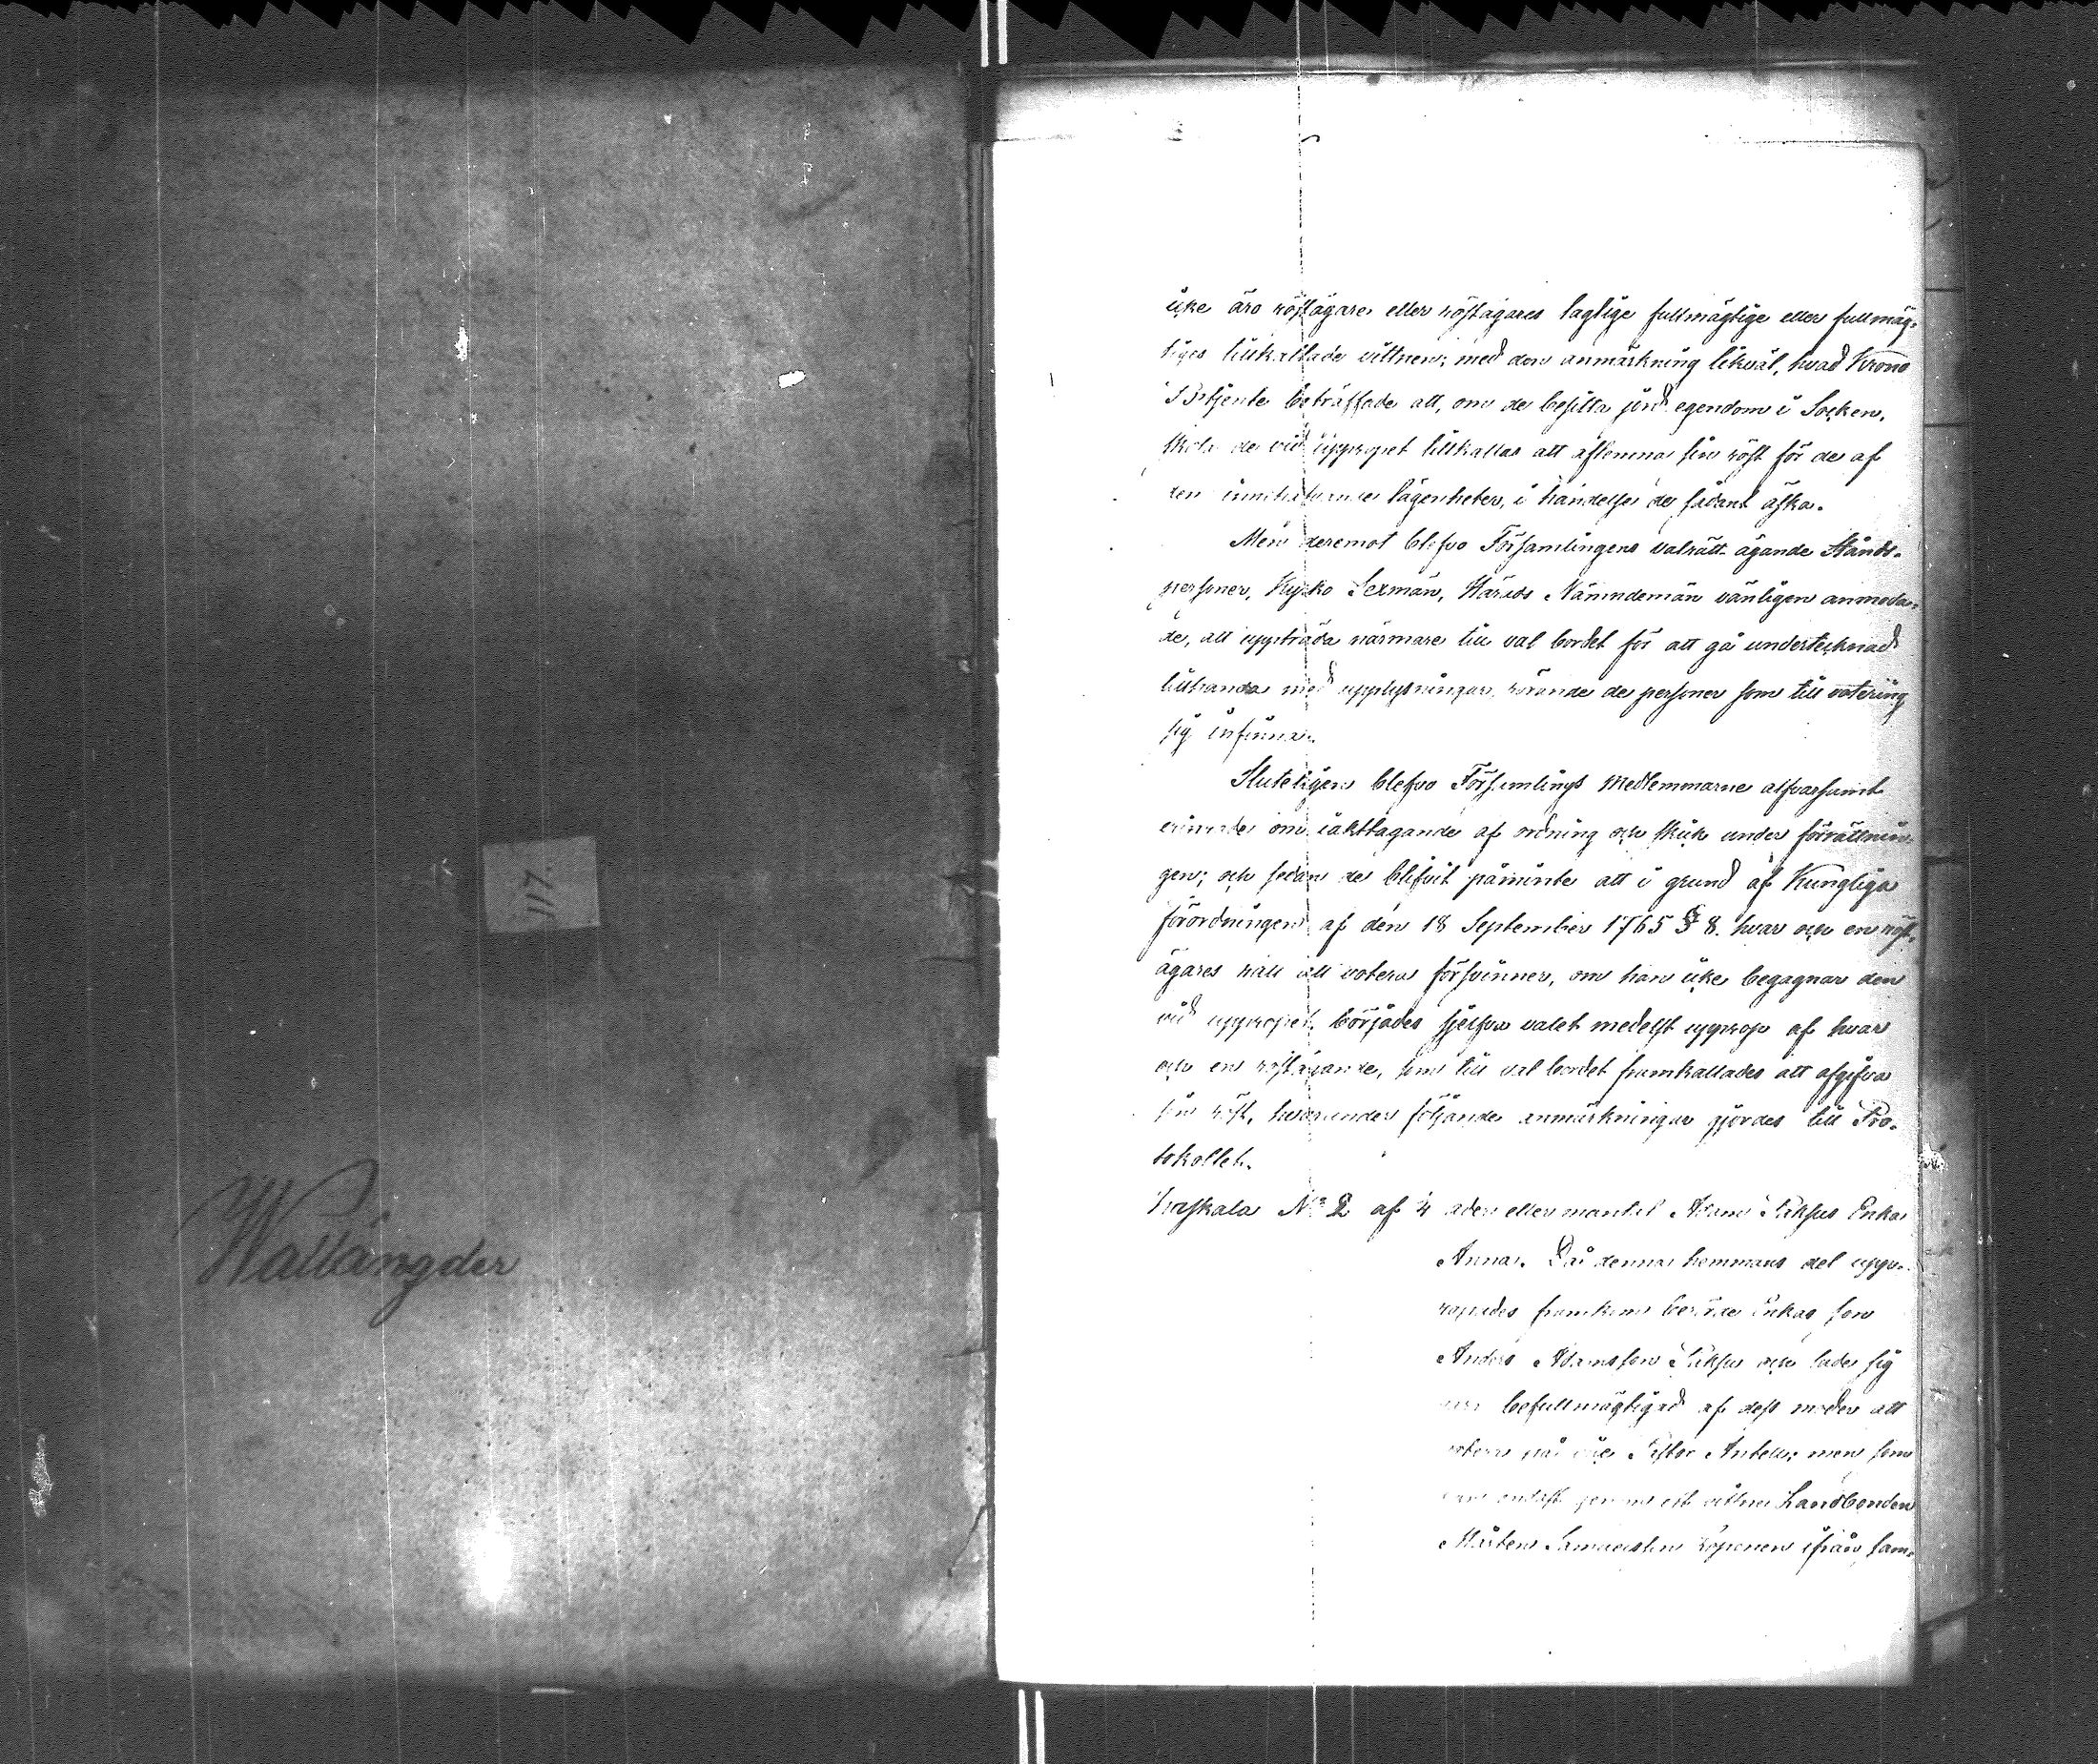 117.
Wallängder
icke äro röstägare eller röstägares laglige fullmägtige eller fullmäg-
tiges tillkallade vittnen; med den anmärkning likväl, hvad Krono
Betjente beträffade att, om de besitta jord egendom i Socken,
skola de vid uppropet tillkallas att aflemna sin röst för de af
dem innehafvande lägenheter, i händelse de sådant äska.
Men deremot blefvo Församlingens valrätt ägande Stånds-
personer, Kyrko Sexmän, Härads Nämndemän vänligen anmoda-
de, att uppträda närmare till val bordet för att gå undertecknad
tillhanda med upplysningar, rörande de personer som till votering
sig infinna.
Sluteligen blefvo Församlings Medlemmarne alfvarsamt
erinrade om iakttagande af ordning och skick under förrättnin-
gen; och sedan de blifvit påminte att i grund af Kungliga
förordningen af den 18 September 1765 § 8. hvar och en röst-
ägares rätt att votera försvinner, om han icke begagnar den
vid uppropet, börjades sjelfva valet medelst upprop af hvar
och en röstägande, som till val bordet framkallades att afgifva
sin röst, hvarunder följande anmärkningar gjordes till Pro-
tokollet.
N:o 2 af 4 eller mantal Adams Enka
Anna. Då denna hemmans del upp-
ropades framkom berörde Enkas son
Anders Adamsson och lade sig
befullmägtigad af dess moder att
votera på Pastor Antell; men som
endast genom ett vittne Landbonden
Mårten Samuelsson ifrån Sam-